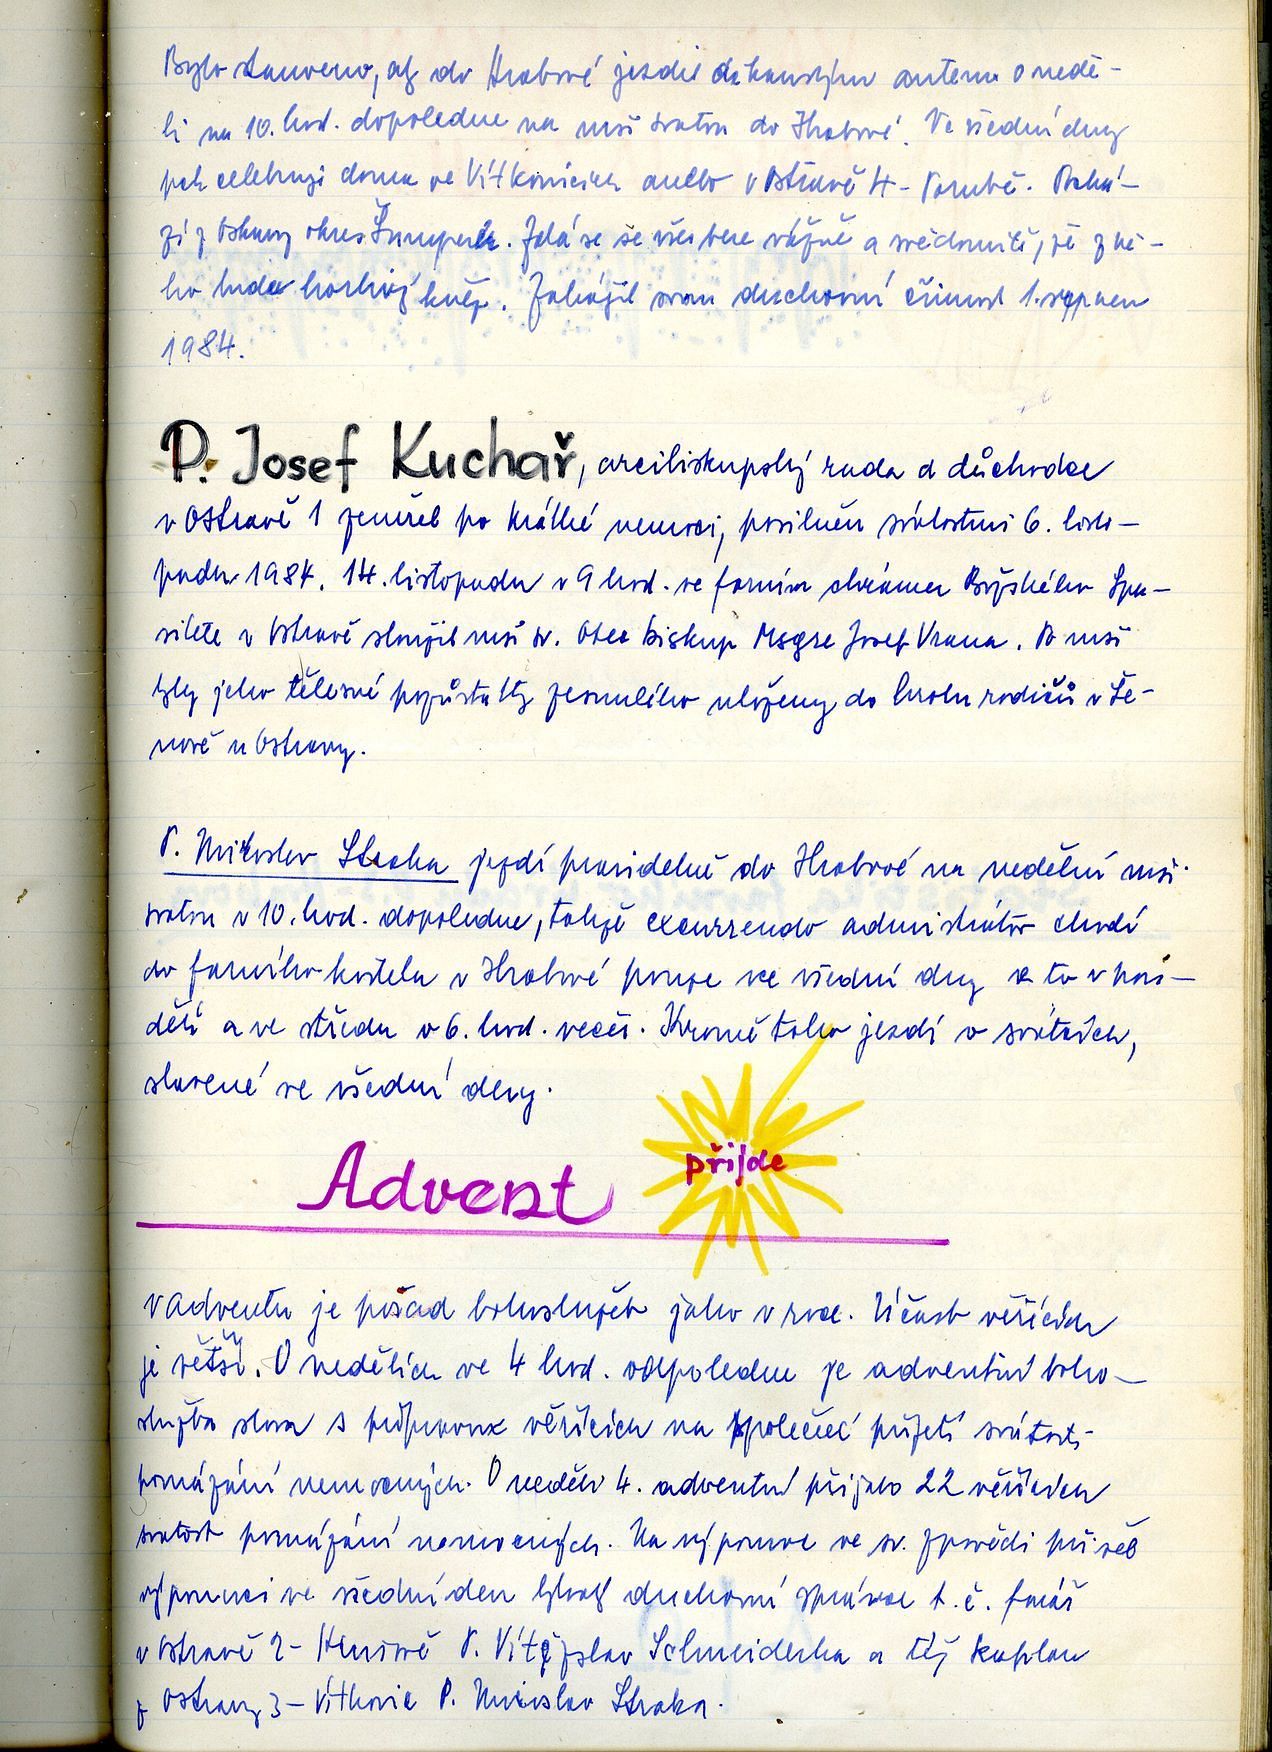 Bylo stanoveno, ať do Hrabové jezdil děkanským autem o nedě-
li na 10. hod. dopoledne na mši svatou do Hrabové. Ve všední dny
pak celebruje doma ve Vítkovicích anebo v Ostravě 4 - Porubě. Pochá-
zí z Oskavy okres Šumperk. Zdá se že vše bere vážně a svědomitě, že z ně-
ho bude horlivý kněz. Zahájil svou duchovní činnost 1. srpnem
1984.
P. Josef Kuchař, arcibiskupský rada a důchodce
v Ostravě 1 zemřel po krátké nemoci, posilněn svátostmi 6. listo-
padu 1984. 14. listopadu v 9 hod. ve farním chrámu Božského Spa-
sitele v Ostravě sloužil mši sv. Otec biskup Msgre Josef Vrana. Po mši
byly jeho tělesné pozůstatky zesnulého uloženy do hrobu rodičů v Še-
nově u Ostravy.
P. Miroslav Straka jezdí pravidelně do Hrabové na nedělní mši
svatou v 10. hod. dopoledne, takže excurrendo administrátor chodí
do farního kostela v Hrabové pouze ve všední dny a to v pon-
dělí a ve středu v 6. hod. večer. Kromě toho jezdí o svátcích,
slavené ve všední dny.
Advent přijde
V adventu je pořad bohoslužeb jako v roce. Účast věřících
je větší. O nedělích ve 4 hod. odpoledne je adventní boho-
služba slova s přípravou věřících na společné přijetí svátosti
pomázání nemocných. O neděli 4. adventní přijalo 22 věřících
svátost pomázání nemocných. Na výpomoc ve sv. zpovědi přišel
vypomoci ve všední den bývalý duchovní správce t. č. farář
v Ostravě 2 - Kunčičkách P. Vítězslav Schneiderka a též kaplan
z Ostravy 3 - Vítkovic P. Miroslav Straka.